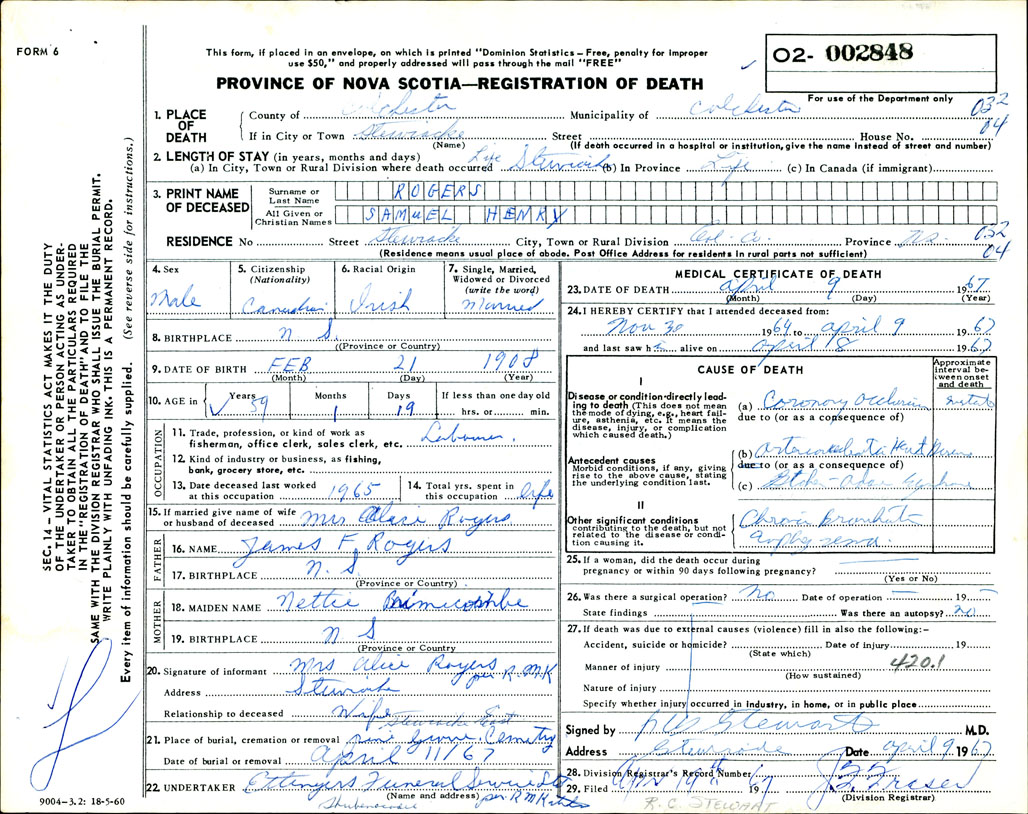 FORM 6
This form, if placed in an envelope, on which is printed "Dominion Statistics – Free, penalty for improper
use $50," and properly addressed will pass through the mail "FREE"
O2- 002848
PROVINCE OF NOVA SCOTIA—REGISTRATION OF DEATH
For use of the Department only
032
04
1. PLACE OF DEATH
County of Colchester Municipality of Colchester
If in City or Town Stewiacke Street House No.
(Name) (If death occurred in a hospital or institution, give the name instead of street and number)
2. LENGTH OF STAY (in years, months and days)
(a) In City, Town or Rural Division where death occurred Life Stewiacke (b) In Province Life (c) In Canada (if immigrant)
3. PRINT NAME OF DECEASED
Surname or Last Name ROGERS
All Given or Christian Names SAMUEL HENRY
RESIDENCE No Street Stewiacke City, Town or Rural Division Col. Co. Province N.S. 032
04
(Residence means usual place of abode. Post Office Address for residents in rural parts not sufficient)
4. Sex Male
5. Citizenship (Nationality) Canadian
6. Racial Origin Irish
7. Single, Married, Widowed or Divorced (write the word) Married
8. BIRTHPLACE N S.
((Province or Country)
9. DATE OF BIRTH FEB 21 1908
(Month) (Day) (Year)
10. AGE in Years 59 Months 1 Days 19 If less than one day old
hrs. or min.
OCCUPATION
11. Trade, profession, or kind of work as
fisherman, office clerk, sales clerk, etc. Labourer.
12. Kind of industry or business, as fishing,
bank, grocery store, etc.
13. Date deceased last worked
at this occupation 1965
14. Total yrs. spent in
this occupation Life
15. If married give name of wife
or husband of deceased Mrs Alice Rogers
FATHER
16. NAME James F. Rogers
17. BIRTHPLACE N. S.
(Province or Country)
MOTHER
18. MAIDEN NAME Nettie
19. BIRTHPLACE N S
(Province or Country)
20. Signature of informant Mrs Alice Rogers per R.M.K
Address Stewiacke
Relationship to deceased Wife
Stewiacke East
21. Place of burial, cremation or removal Pine Grove Cemetry
Date of burial or removal April 11/67
22. UNDERTAKER Ettingers Funeral Service
(Name and address)
Shubenacadie per R M
MEDICAL CERTIFICATE OF DEATH
23. DATE OF DEATH April 9 1967
(Month) (Day) (Year)
24. I HEREBY CERTIFY that I attended deceased from:
Nov 30 1964 to April 9 1967
and last saw h alive on April 8 1967
CAUSE OF DEATH
Approximate interval between onset and death
I
Disease or condition directly leading to death (This does not mean
the mode of dying, e.g., heart failure, asthenia, etc. It means the
disease, injury, or complication
which caused death.)
(a) Coronary Occlusion
due to (or as a consequence of)
Antecedent causes
Morbid conditions, if any, giving
rise to the above cause, stating
the underlying condition last.
(b) Heart Disease
due to (or as a consequence of)
(c) Stokes-Adams Syndrome
II
Other significant conditions
contributing to the death, but not
related to the disease or condition causing it.
Chronic Bronchitis
Emphysema.
25. If a woman, did the death occur during
pregnancy or within 90 days following pregnancy?
(Yes or No)
26. Was there a surgical operation? No Date of operation — 19 –
State findings Was there an autopsy? No
27. If death was due to external causes (violence) fill in also the following:–
Accident, suicide or homicide? Date of injury 19
(State which)
Manner of injury 420.1
(How sustained)
Nature of injury
Specify whether injury occurred in industry, in home, or in public place
Signed by Stewart M.D.
Address Stewiacke Date April 9 1967
28. Division Registrar's Record Number
29. Filed Apr 19th 1967 Fraser
(Division Registrar)
R. C. STEWART
SEC. 14 – VITAL STATISTICS ACT MAKES IT THE DUTY
OF THE UNDERTAKER OR PERSON ACTING AS UNDER-
TAKER TO OBTAIN ALL THE PARTICULARS REQUIRED
IN THE "REGISTRATION OF DEATH" AND TO FILE THE
SAME WITH THE DIVISION REGISTRAR WHO SHALL ISSUE THE BURIAL PERMIT.
WRITE PLAINLY WITH UNFADING INK. THIS IS A PERMANENT RECORD.
Every item of information should be carefully supplied. (See reverse side for instructions.)
9004–3.2: 18-5-60